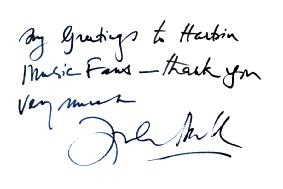 My Greetings to Harbin
Music Fans – thank you
very much